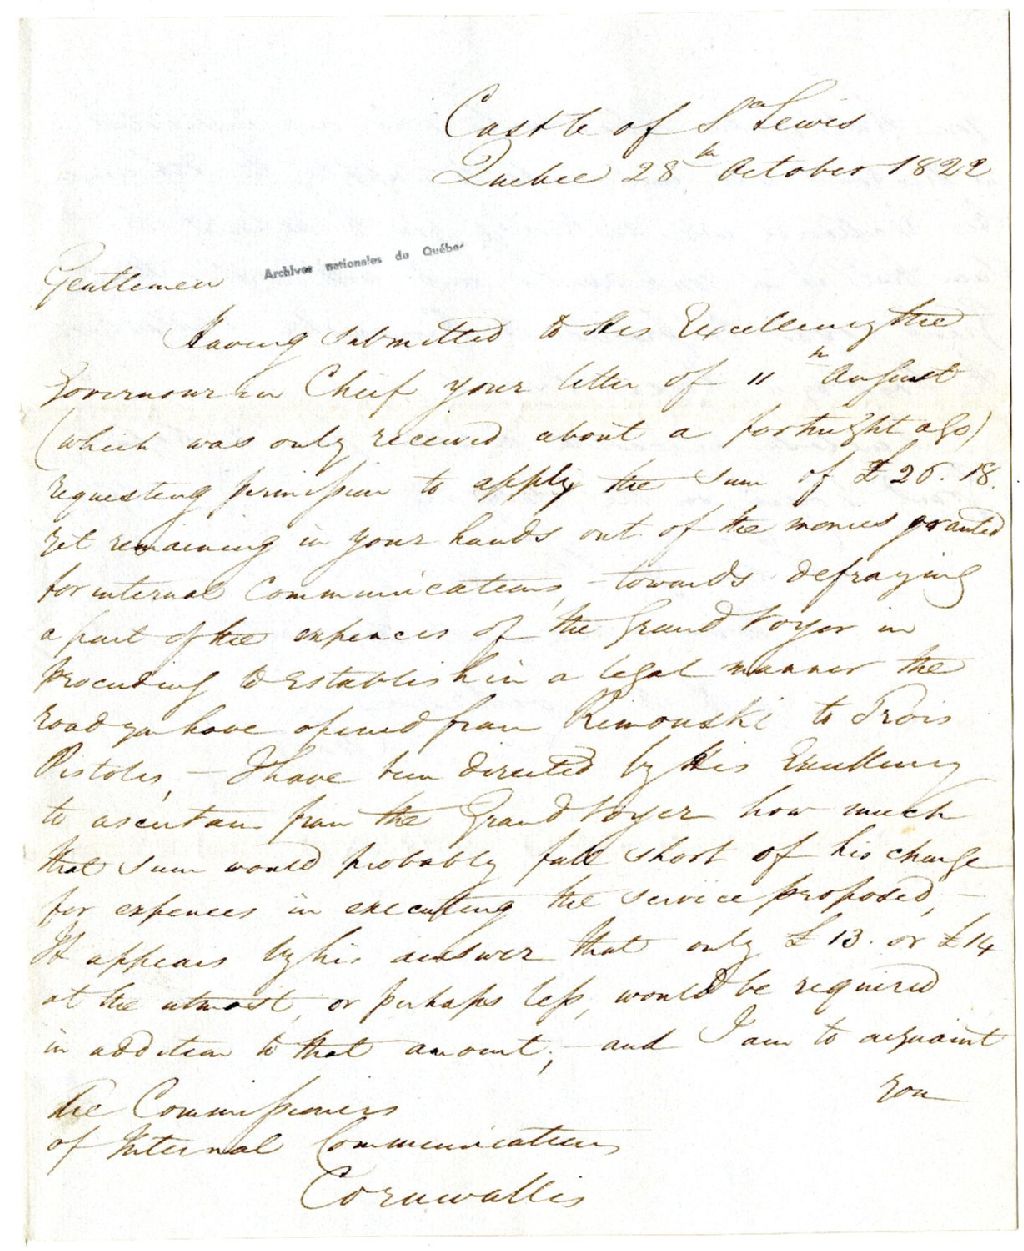 Castle of St Lewis
Quebec 28th October 1822
Archives nationales du Québec
Gentlemen
Having submitted to His Excellency the
Governour in Chief your letter of 11th August
(which was only received about a fortnight ago)
requesting permission to apply the sum of £26.18.
yet remaining in your hands out of the monies granted
for internal Communications, - towards defraying
a part of the expences of the Grand Voyer in
proceeding to establish in a legal manner the
road you have opened from Rimouski to Trois
Pistoles, - I have been directed by His Excellency
to ascertain from the Grand Voyer how much
that sum would probably fall short of his charge
for expences in executing the service proposed, -
It appears by his answer that only £13. or £14
at the utmost, or perhaps less, would be required
in addition to that amount; - and I am to acquaint
you
The Commissioners
of Internal Communications
Cornwallis